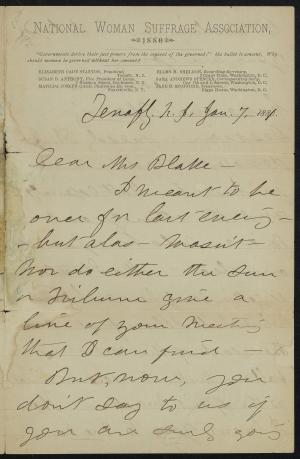 NATIONAL WOMAN SUFFRAGE ASSOCIATION,
1880
"Governments derive their just powers from the consent of the governed;" the ballot is consent. Why
should woman be governed without her consent?
ELIZABETH CADY STANTON, President,
Tenafly, N. J.
SUSAN B. ANTHONY, Vice President at Large,
Rochester, N. Y.
MATILDA JOSLYN GAGE,
Fayetteville, N. Y.
ELLEN H. SHELDON, Recording Secretary,
Washington, D. C.
SARA ANDREWS SPENCER, Corresponding Secretary,
Washington, D. C.
JANE H. SPOFFORD, Treasurer,
Riggs House, Washington, D. C.
Tenafly, N. J. Jan. 7, 1881.
Dear Mrs Blake —
I meant to be
over for last evening —
— but alas — wasn't —
Nor do either the Sun
or Tribune give a
line of your meeting
that I can find —
But, now, you
don't say to us if
you are surely going